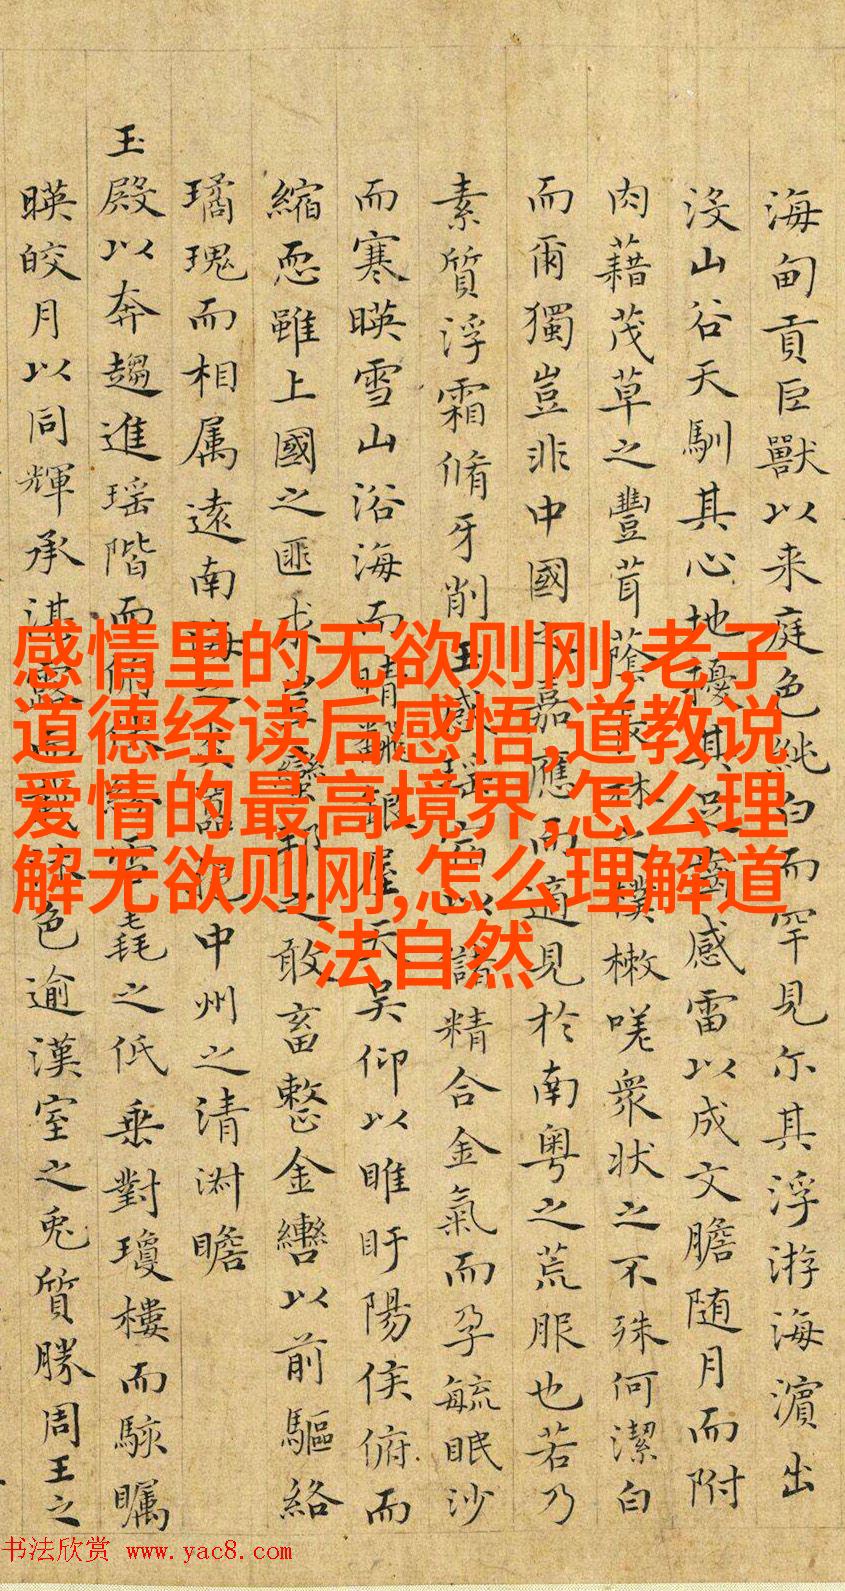 感情里的无欲则刚,老子
道德经读后感悟,道教说
爱情的最高境界,怎么理
解无欲则刚,怎么理解道
法自然
海甸貢巨獸以来庭色純白而罕見尓其浮游海濱出
没山谷天馴其心地擾其齒感雷以成文膽随月而附
肉藉茂草之豐茸蔭長林之樸樕嗟衆状之不殊何潔白
而爾獨豈非中國之嘉應而適見於南粤之荒服也若乃
素質浮霜脩牙削玉感瑶以諸精合金氣而孕毓眠沙
而寒暎雪山浴海而晴翻銀屋天吴仰以睢盱陽侯俯而
縮恧雖上國之匪求豈蠻邦之敢畜整金轡以前驅絡
璚瑰而相属逺南海之中州之清淑瞻
玉殿以奔趨進瑶階而俯雪毳之低乗對瓊樓而駭矚
暎皎月以同輝承湛露色逾漢室之兎質勝周王之
书法欣赏 www.yac8.com